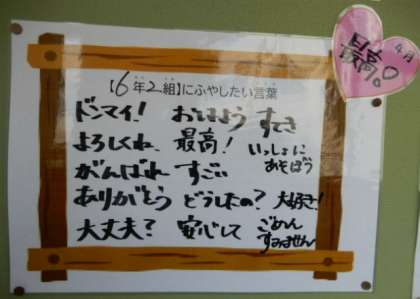 【6年2組】にふやしたい言葉
ドンマイ! おはよう すてき
よろしくね 最高! いっしょにあそぼう
がんばれ すごい
ありがとう どうしたの? 大好き!
大丈夫? 安心して ごめん すみません
4月
最高。